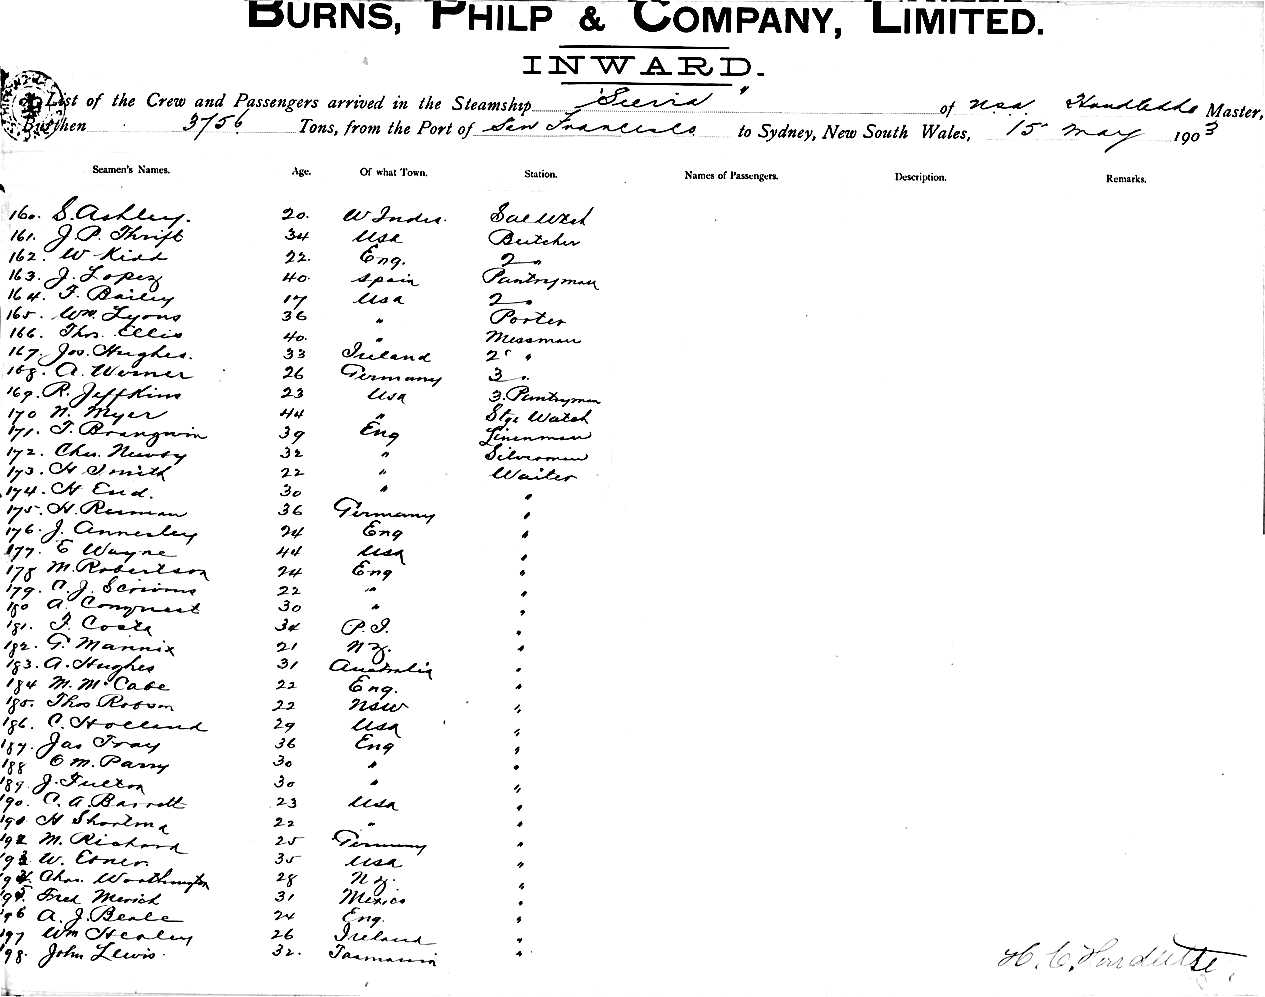 BURNS, PHILP & COMPANY, LIMITED.
INWARD.
List of the Crew and Passengers arrived in the Steamship "Sierra" of USA Houdlette Master,
Burthen 3756 Tons, from the Port of San Francisco to Sydney, New South Wales, 15 May 1903
Seamen's Names. Age. Of what Town. Station. Names of Passengers. Description. Remarks.
160. S. Ashley. 20. W Indes. Sal Wch
161. J. P. Thrift 34 Usa Butcher
162. W Kidd 22. Eng. 2 "
163. J. Lopez 40. Spain Pantryman
164. F. Bailey 17 Usa 2 "
165. Wm. Lyons 36 " Porter
166. Thos. Ellis 40. " Messman
167. Jos. Hughes. 33 Ireland 2 "
168. A. Werner 26 Germany 3 "
169. R. Jeffkins 23 Usa 3. Pantryman
170 N. Myer 44 " Stge Watch
171. F. Brangwin 39 Eng Linenman
172. Chas. Newby 32 " Silverman
173. H Smith 22 " Waiter
174. H End. 30 " "
175. H. Reiman 36 Germany "
176. J. Annesley 24 Eng "
177. E Wayne 44 Usa "
178 M. Robertson 24 Eng "
179. C. J. Scrivens 22 " "
180 A. Conquest 30 " "
181. F. Costa 34 P. I. "
182. G. Mannix 21 N Z. "
183. A. Hughes 31 Australia "
184 M. McCabe 22 Eng. "
185. Thos Robson 22 NSW "
186. C. Holland 29 Usa "
187. Jas Fray 36 Eng "
188 C M. Parry 30 " "
189 J. Fulton 30 " "
190. C. A. Barrett 23 Usa "
191 H 22 " "
192 M. Richard 25 Germany "
193 W. Ebner. 35 Usa "
194. Chas. Worthington 28 N Z. "
195. Fred Merich 31 Mexico "
196 A. J. Beale 24 Eng. "
197 Wm Healey 26 Ireland "
198. John Lewis. 32. Tasmania "
H. C. Houdlette